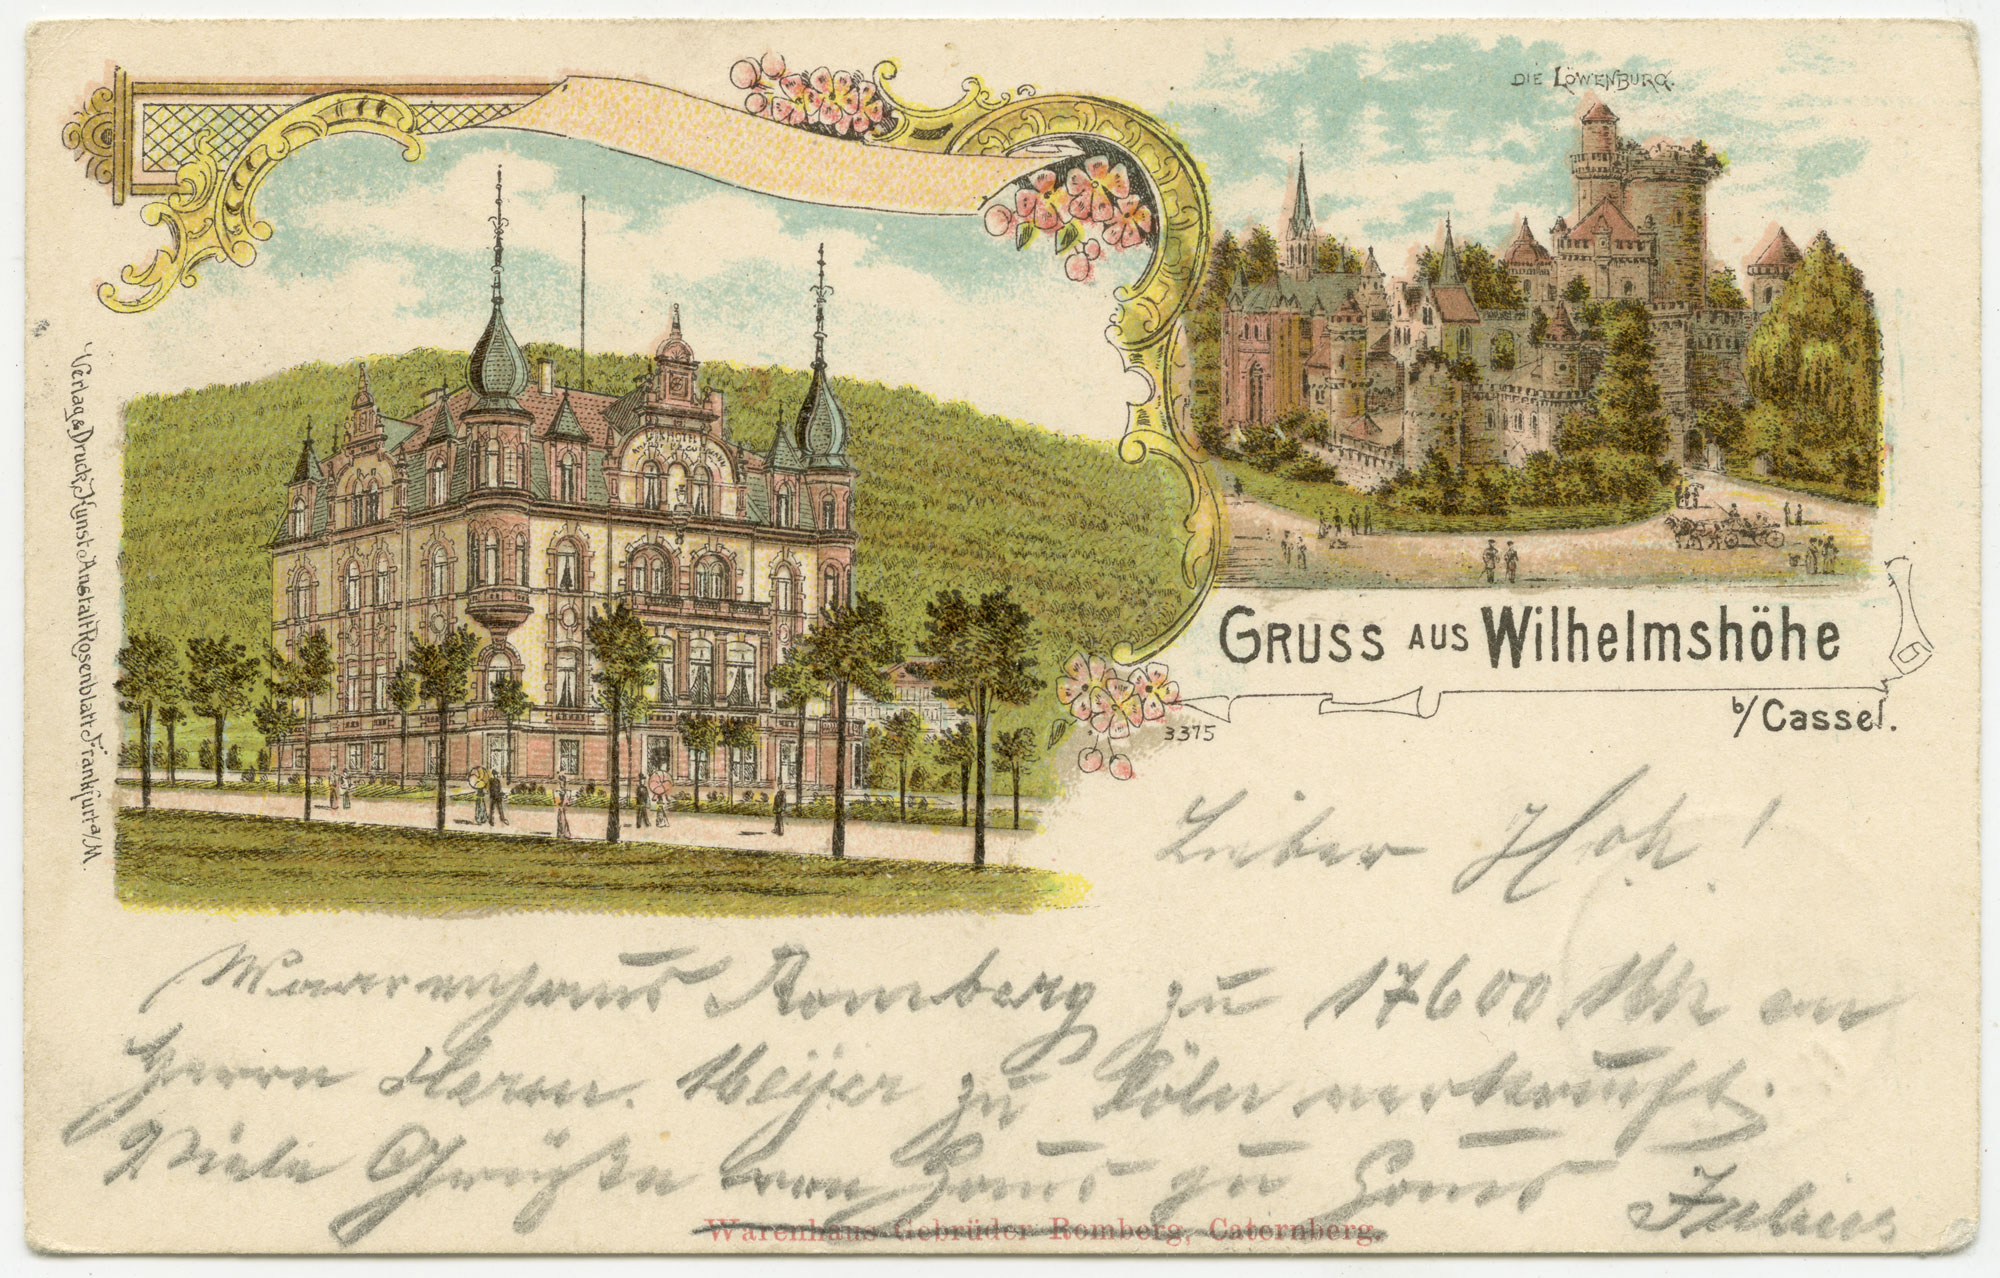 DIE LÖWENBURG.
GRUSS AUS Wilhelmshöhe
b/Cassel.
3375
Verlag & Druck, Kunst-Anstalt Rosenblatt, Frankfurt a/M.
Lieber
Waarenhaus Romberg zu 17600 Mk an
Herrn Herm. Meyer zu Köln verkauft.
Viele Grüße von Haus zu Haus
Julius
Warenhaus Gebrüder Romberg, Caternberg.